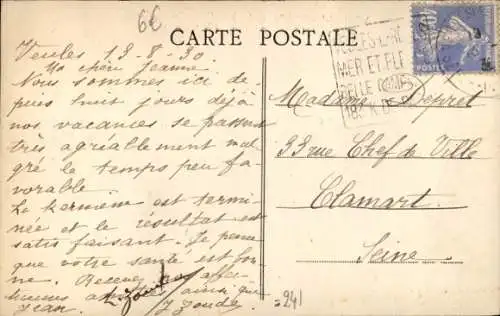 6€
CARTE POSTALE
Veules 13-8-30
Ma chère Jeanne.
Nous sommes ici de-
puis huit jours déjà
nos vacances se passent
très agréablement mal
gré le temps peu fa-
vorable.
La kermesse est termi-
née et le résultat est
satis faisant. Je pense
que votre santé est bo
nne. Recevez
ainsi que
Jean.
MER ET
BELLE
POSTES
Madame Depret
33 rue Chef de Ville
Clamart.
Seine
=241